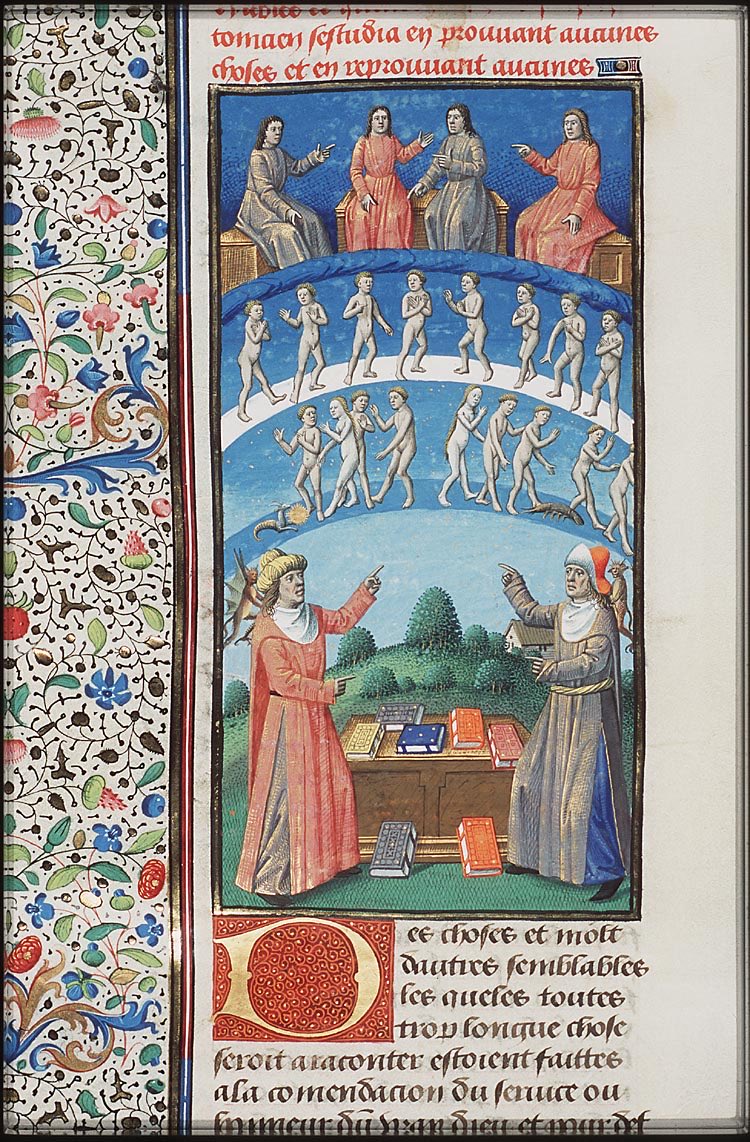 tomcien sestudia en prouuant aucunes
choses et en reprouuant aucunes
Des choses et molt
dautres semblables
les queles toutes
trop longue chose
seroit a raconter estoient faittes
a la comendacion du seruice ou
honneur du vray dieu et pour